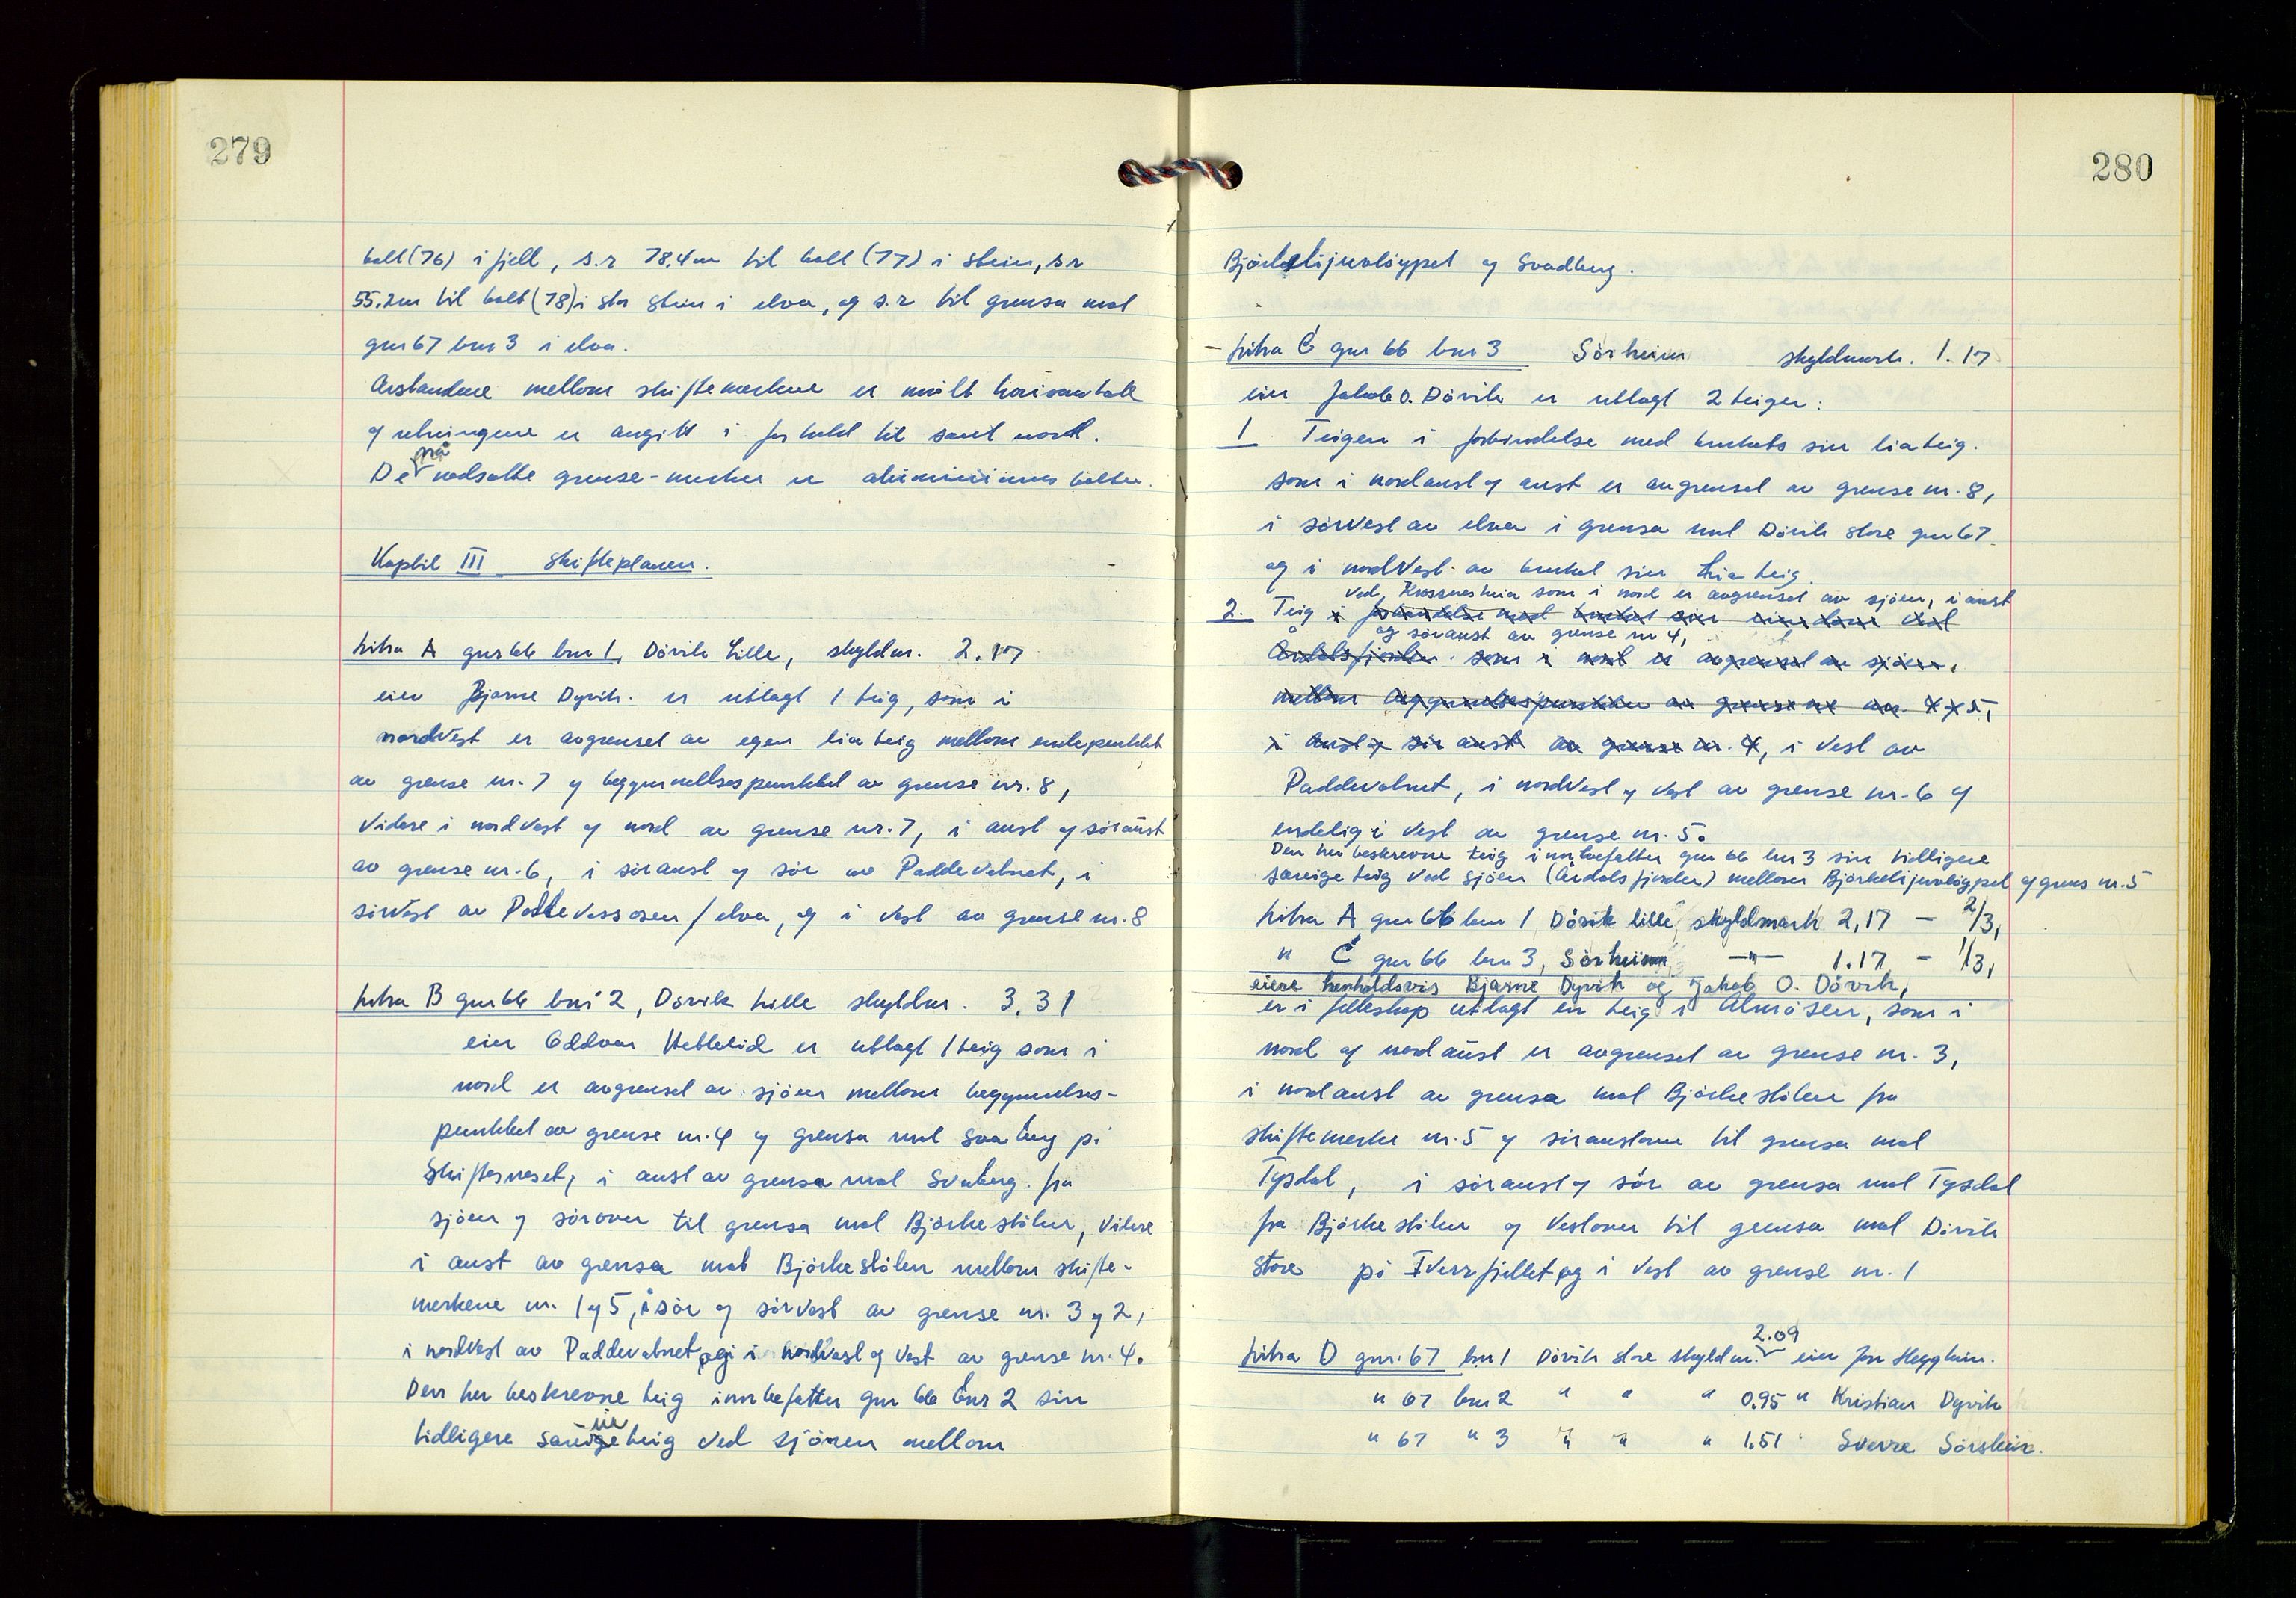 279
bolt (76) i fjell, s.r 78,4m til bolt (77) i stein, s.r
55.2m til bolt (78) i stor stein i elva, og s.r til grensa mot
gnr 67 bnr 3 i elva.
Avstandene mellom skiftemerkene er målt horisontalt
og retningene er angitt i forhold til sant nord.
De nå nedsatte grense-merker er aluminiums bolter.
Kapitel III Skifteplanen.
Litra A gnr 66 bnr 1, Dövik Lille, skyldm. 2.17
eier Bjarne Dyvik. er utlagt 1 teig, som i
nordvest er avgrenset av egen lia teig mellom endepunktet
av grense nr. 7 og begynnellsespunktet av grense nr. 8,
videre i nordvest og nord av grense nr. 7, i aust og söraust
av grense nr. 6, i söraust og sör av Paddevatnet, i
sörvest av Paddevassosen / elva, og i vest av grense nr. 8
Litra B gnr 66 bnr 2, Dövik Lille skyldm. 3.31
eier Oddvar Hetleleid er utlagt 1 teig som i
nord er avgrenset av sjöen mellom begynnelses-
punktet av grense nr. 4 og grensa mot Svaberg på
Skiftesneset, i aust av grensa mot Svaberg. fra
sjöen og sörover til grensa mot Björkestölen, videre
i aust av grensa mot Björkestölen mellom skifte-
merkene nr. 1 og 5, i sör og sörvest av grense nr. 3 og 2,
i nordvest av Paddevatnet, og i nordvest og vest av grense nr. 4.
Den her beskrevne teig innbefatter gnr 66 bnr 2 sin
tidligere særeige teig ved sjöen mellom
280
Björkelijuvlöypet og Svadberg.
Litra C gnr 66 bnr 3 Sörheim skyldmark. 1.17
eier Jakob O. Dövik er utlagt 2 teiger:
1 Teigen i forbindelse med brukets sin liateig.
som i nordaust og aust er avgrenset av grense nr. 8,
i sörvest av elva i grensa mot Dövik store gnr 67
og i nordvest av bruket sin Lia teig.
ved Krossnesheia som i nord er avgrenset av sjöen, i aust
2. Teig i forbindelse med bruket sin eiendom ved
og söraust av grense nr 4,
Årdalsfjorden. som i nord er avgrenset av sjöen,
mellom begynnelsespunktene av grensene nr. 4 og 5,
i aust og sör aust av grense nr. 4, i vest av
Paddevatnet, i nordvest og vest av grense nr. 6 og
endelig i vest av grense nr. 5.
Den her beskrevne teig innbefatter gnr 66 bnr 3 sin tidligere
særeige teig ved sjöen (Årdalsfjorden) mellom Björkelijuvlöypet og grens nr. 5
Litra A gnr 66 bnr 1 Dövik lille, skyldmark 2,17 – 2/3,
" C gnr 66 bnr 3, Sörheim, —"— 1.17 – 1/3,
eiere henholdsvis Bjarne Dyvik og Jakob O. Dövik,
er i felleskap utlagt en teig i Almåsen, som i
nord og nordaust er avgrenset av grense nr. 3,
i nordaust av grensa mot Björkestölen fra
skiftemerke nr. 5 og söraustover til grensa mot
Tysdal, i söraust og sör av grensa mot Tysdal
fra Björkestölen og vestover til grensa mot Dövik
Store på Tverrfjellet, og i vest av grense nr. 1
Litra D gnr. 67 bnr 1 Dövik store skyldm. 2.09 eier Jon Hegghein.
" 67 bnr 2 " " " 0.95 " Kristian Dyvik
" 67 " 3 " " " 1.51 Sverre Sörskår.